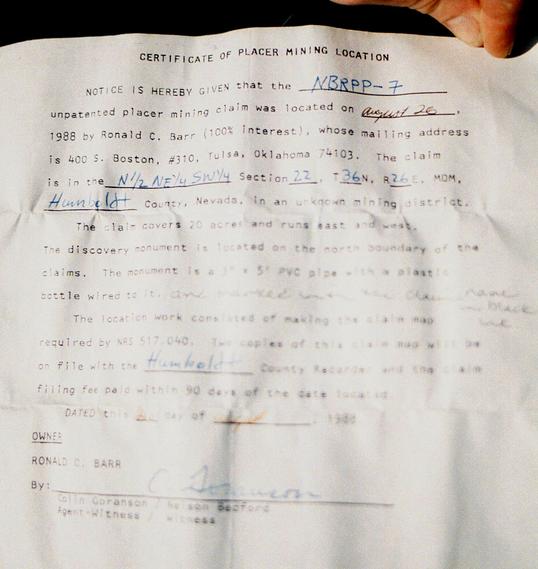 CERTIFICATE OF PLACER MINING LOCATION
NOTICE IS HEREBY GIVEN that the NBRPP-7
unpatented placer mining claim was located on August 26,
1988 by Ronald C. Barr (100% interest), whose mailing address
is 400 S. Boston, #310, Tulsa, Oklahoma 74103. The claim
is in the N½ NE¼ SW¼ Section 22, T36N, R26E, MDM,
Humboldt County, Nevada, in an unknown mining district.
The claim covers 20 acres and runs east and west.
The discovery monument is located on the north boundary of the
claims. The monument is a 3" x 5' PVC pipe with a plastic
bottle wired to it, and marked with the claim name
in black
The location work consisted of making the claim map
required by NRS 517.040. Two copies of this claim map will be
on file with the Humboldt County Recorder and the claim
filing fee paid within 90 days of the date located.
DATED this day of , 1988
OWNER
RONALD C. BARR
By: C Goranson
Colin Goranson / Nelson Bedford
Agent-Witness / Witness